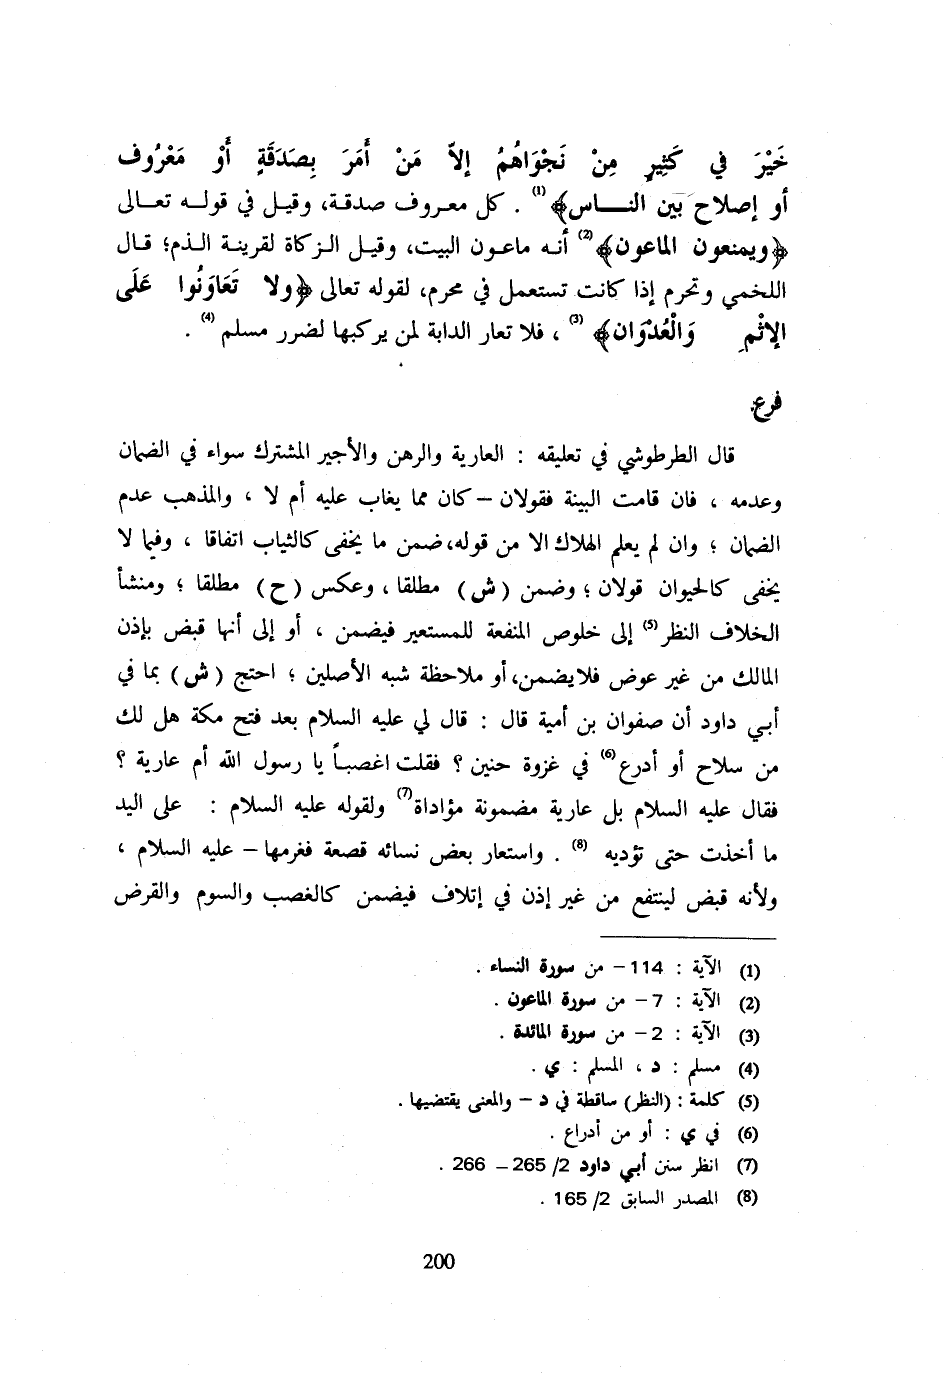 خَيْرَ في كَثِيرٍ مِنْ نَجْوَاهُمُ إلاّ مَنْ أَمَرَ بِصَدَقَةٍ أَوْ مَعْرُوف
أو إصلاح بَين النـاس﴾ (1) . كل معروف صدقة، وقيل في قوله تعالى
﴿ويمنعون الماعون﴾ (2) أنه ماعون البيت، وقيل الزكاة لقرينة الذم؛ قال
اللخمي وتحرم إذا كانت تستعمل في محرم، لقوله تعالى ﴿ولا تَعَاوَنُوا عَلَى
الإثْمِ وَالْعُدْوَان﴾ (3) ، فلا تعار الدابة لمن يركبها لضرر مسلم (4) .
فرع:
قال الطرطوشي في تعليقه : العارية والرهن والأجير المشترك سواء في الضمان
وعدمه ، فان قامت البينة فقولان – كان مما يغاب عليه أم لا ، والمذهب عدم
الضمان ؛ وان لم يعلم الهلاك الا من قوله، ضمن ما يخفى كالثياب اتفاقا ، وفيما لا
يخفى كالحيوان قولان ؛ وضمن ( ش ) مطلقا ، وعكس ( ح ) مطلقا ؛ ومنشأ
الخلاف النظر (5) إلى خلوص المنفعة للمستعير فيضمن ، أو إلى أنها قبض بإذن
المالك من غير عوض فلا يضمن، أو ملاحظة شبه الأصلين ؛ احتج ( ش ) بما في
أبي داود أن صفوان بن أمية قال : قال لي عليه السلام بعد فتح مكة هل لك
من سلاح أو أدرع (6) في غزوة حنين ؟ فقلت اغصباً يا رسول الله أم عارية ؟
فقال عليه السلام بل عارية مضمونة مؤاداة (7) ولقوله عليه السلام : على اليد
ما أخذت حتى تؤديه (8) . واستعار بعض نسائه قصعة فغرمها – عليه السلام ،
ولأنه قبض لينتفع من غير إذن في إتلاف فيضمن كالغصب والسوم والقرض
(1) الآية : 114 – من سورة النساء .
(2) الآية : 7 – من سورة الماعون .
(3) الآية : 2 – من سورة المائدة .
(4) مسلم : د ، المسلم : ي .
(5) كلمة : (النظر) ساقطة في د – والمعنى يقتضيها .
(6) في ي : أو من أدراع .
(7) انظر سنن أبي داود 2/ 265 – 266 .
(8) المصدر السابق 2/ 165 .
200